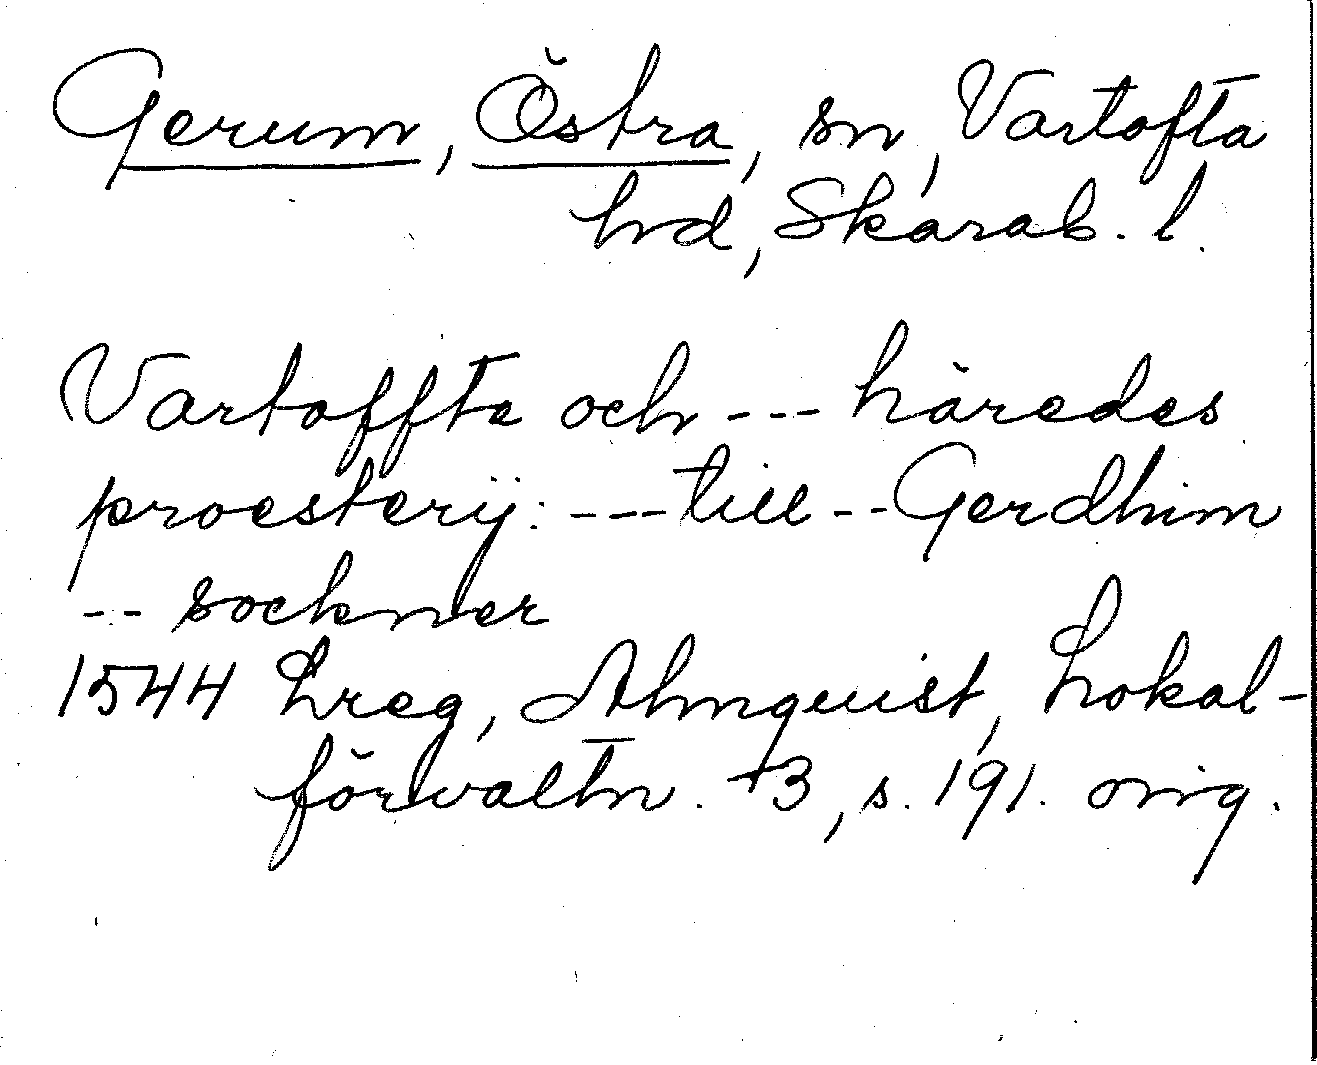 Gerum, Östra, sn, Vartofta
hrd, Skarab. l.
Vartoffta och --- häredes
proesterij: --- till -- Gerdhim
-- sockner
1544 Lreg, Almquist, Lokal-
förvaltn. +3, s. 191. orig.